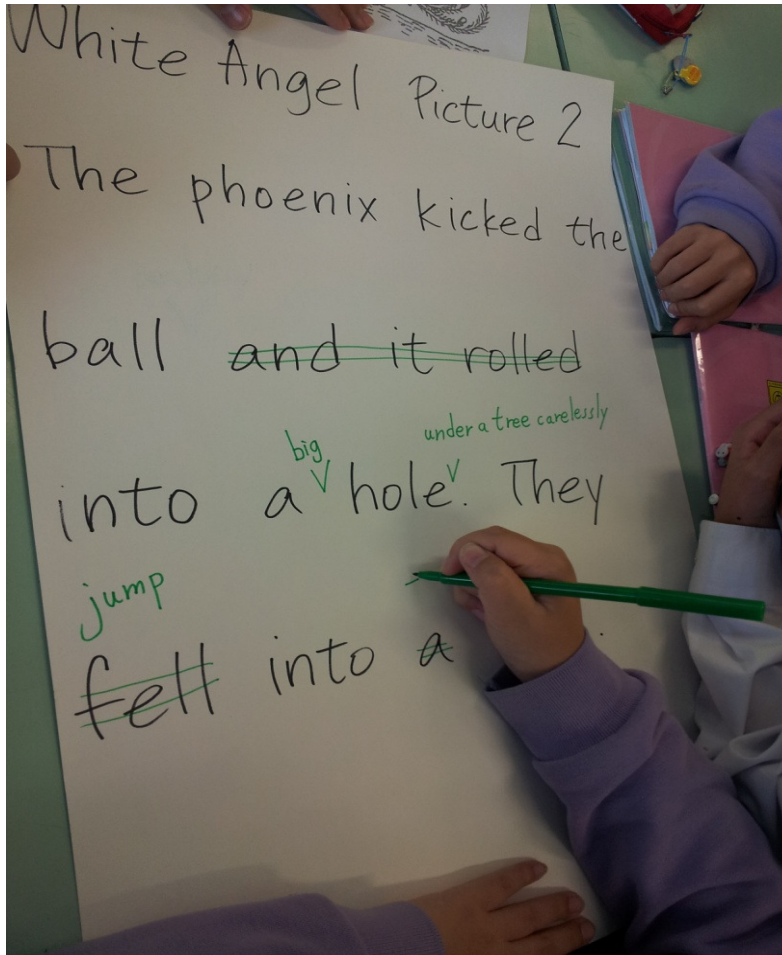 White Angel Picture 2
The phoenix kicked the
ball and it rolled
big under a tree carelessly
into a hole. They
jump
fell into a